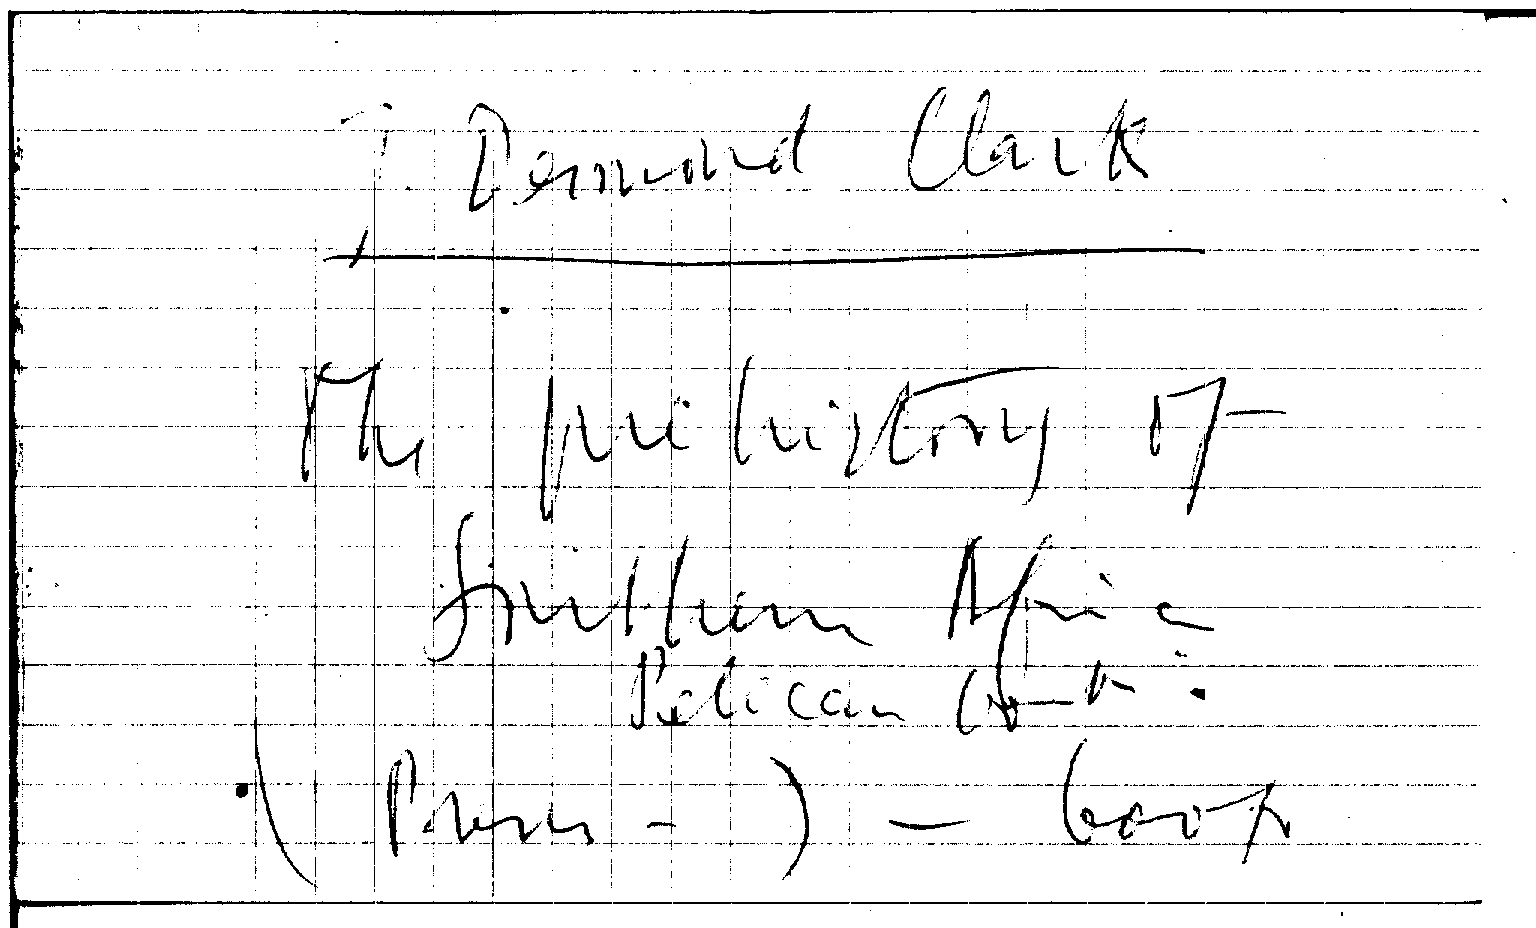 J. Desmond Clark
The prehistory of
Southern Africa
Pelican
( ) — book